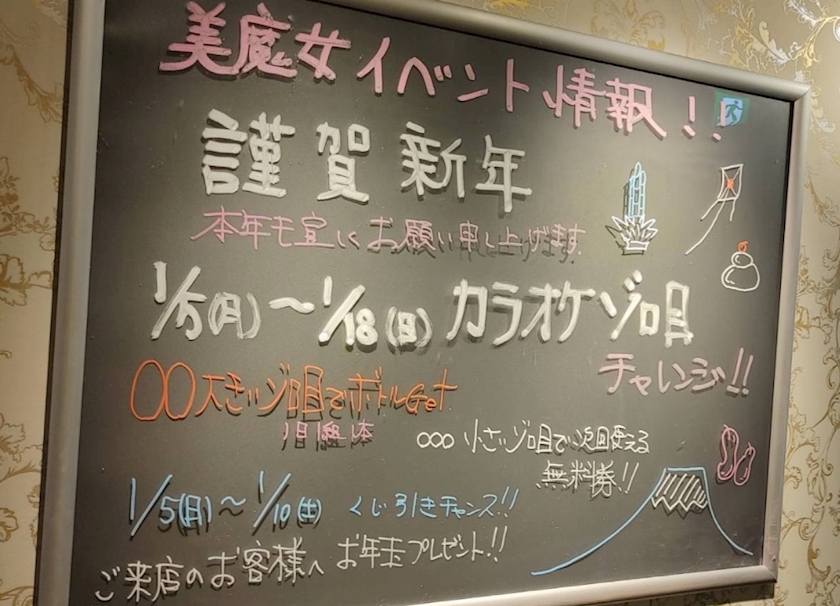 美魔女イベント情報!!
謹賀新年
本年も宜しくお願い申し上げます
1/5(月)～1/18(日) カラオケゾロ目
チャレンジ!!
○○大きいゾロ目でボトルGet
1日1組1本
○○○ 小さいゾロ目で次回使える
無料券!!
1/5(月)～1/10(土) くじ引きチャンス!!
ご来店のお客様へ お年玉プレゼント!!